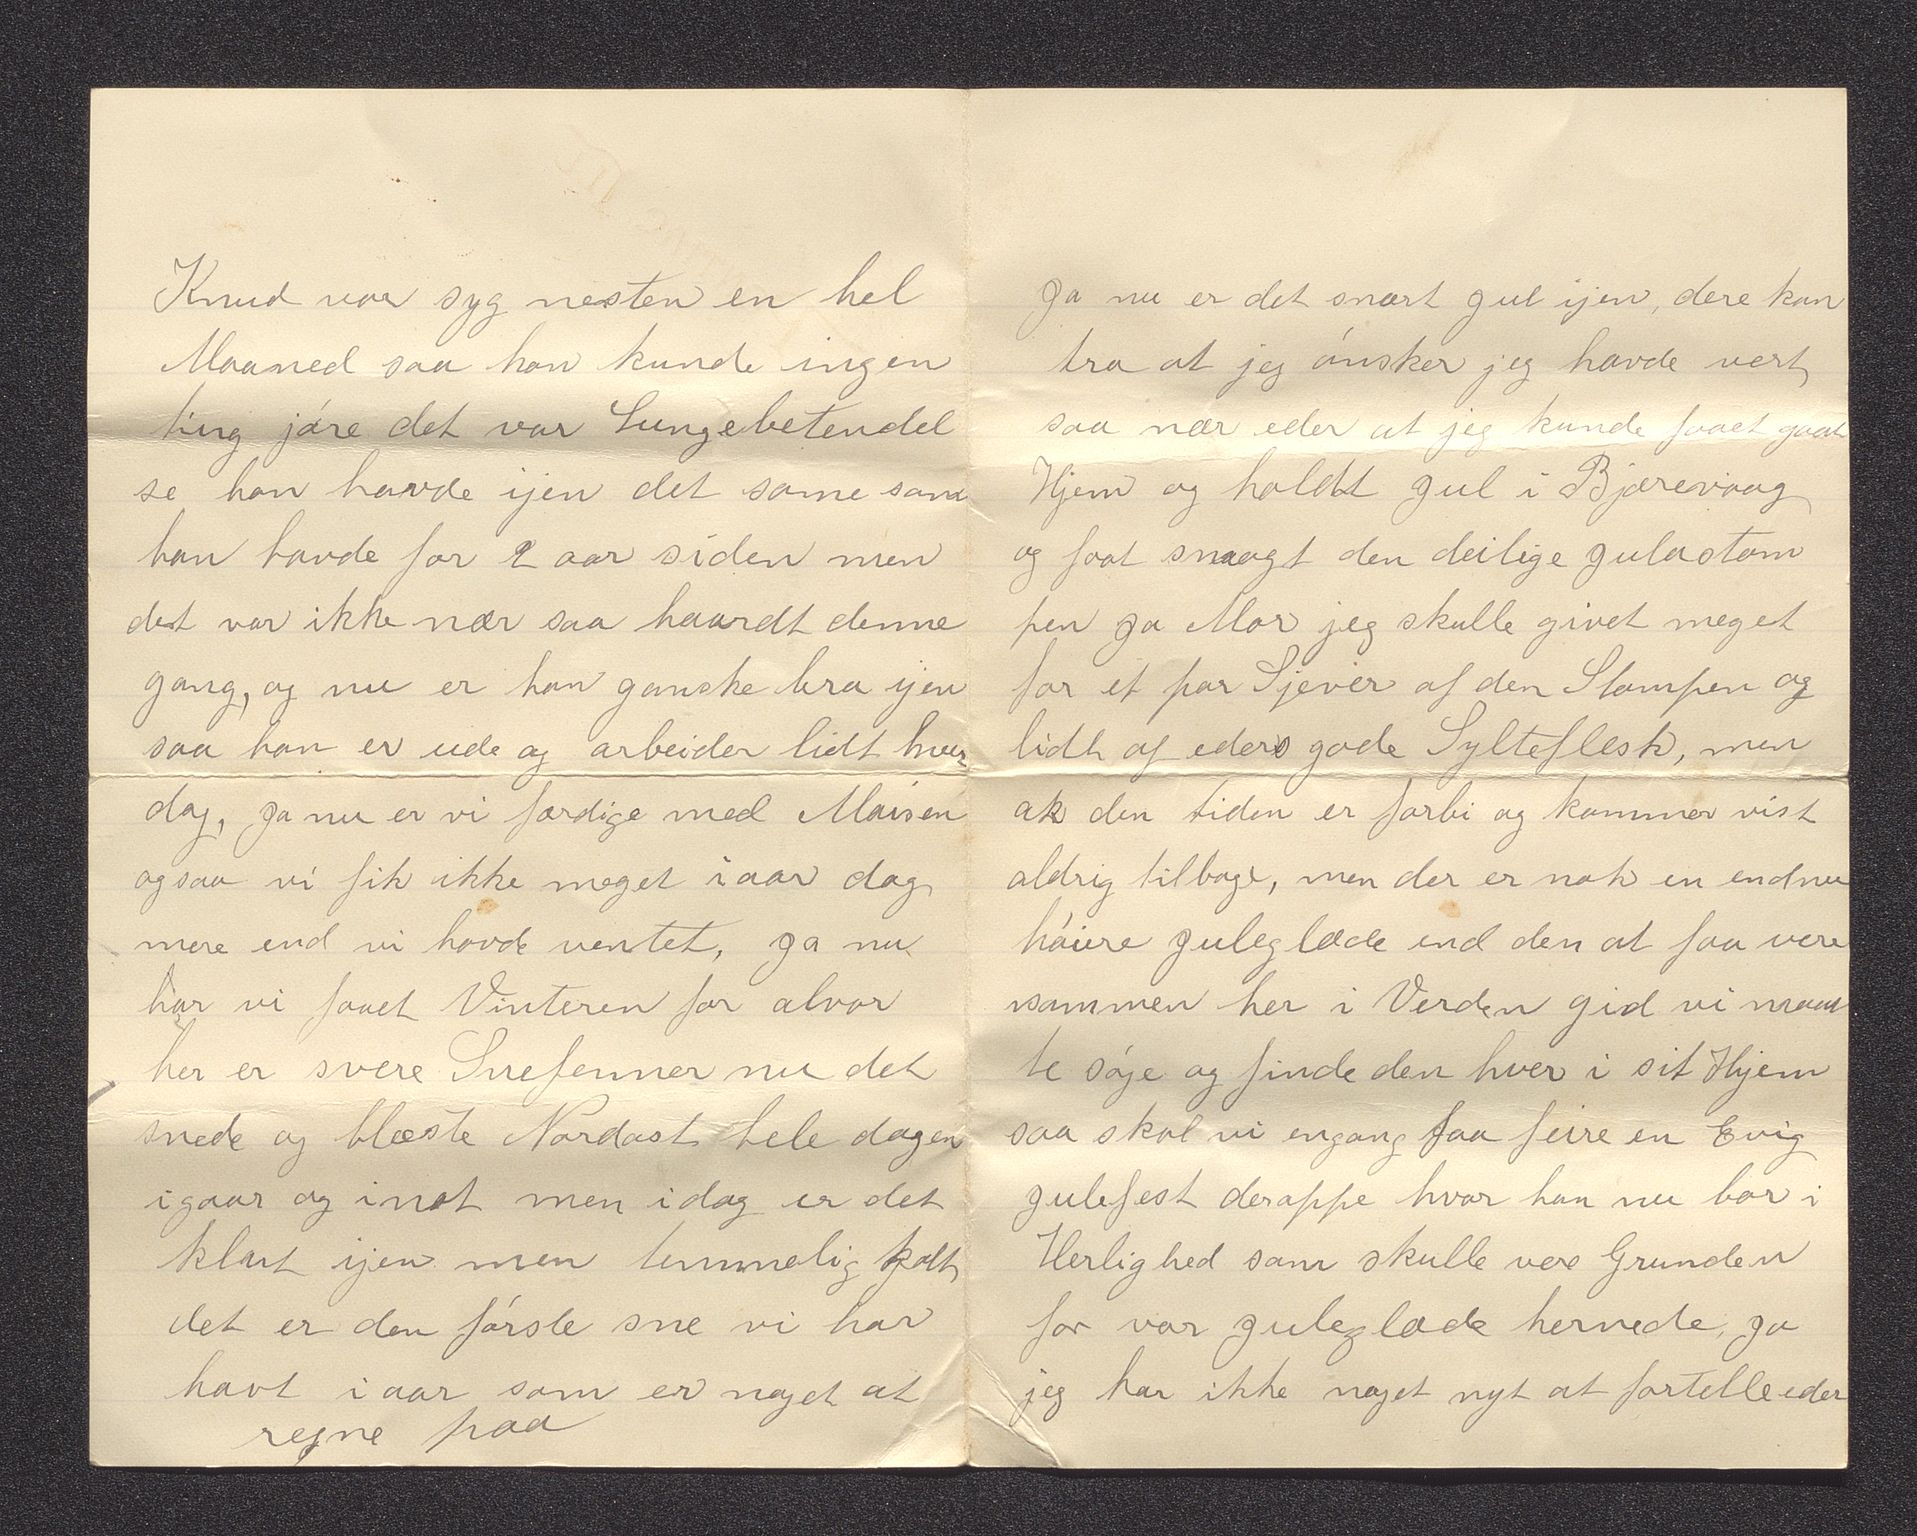 Knud var syg nesten en hel
Maaned saa han kunde ingen
ting jøre det var Lungebetendel
se han havde ijen det same som
han havde for 2 aar siden men
det var ikke nær saa haardt denne
gang, og nu er han ganske bra ijen
saa han er ude og arbeider lidt hver
dag, Ja nu er vi færdige med Maisen
ogsaa vi fik ikke meget i aar dog
mere end vi havde ventet, Ja nu
har vi faaet Vinteren for alvor
her er svere Snefenner nu det
snede og blæste Nordost hele dagen
igaar og inat men idag er det
klart ijen men temmelig kolt
det er den første sne vi har
havt i aar som er noget at
regne paa
Ja nu er det snart Jul ijen, dere kan
tro at jeg ønsker jeg havde vert
saa nær eder at jeg kunde faaet gaat
Hjem og holdt Jul i Bjørevaag
og faat smagt den deilige Julastom
pen Ja Mor jeg skulle givet meget
for et par Sjever af den Stompen og
lidt af eders gode Sylteflesk, men
ak den tiden er forbi og kommer vist
aldrig tilbage, men der er nok en endnu
høiere Juleglæde end den at faa vere
sammen her i Verden gid vi maat
te søje og finde den hver i sit Hjem
saa skal vi engang faa feire en Evig
Julefest deroppe hvor han nu bor i
Herlighed som skulle vere Grunden
for vor Juleglæde hernede, Ja
jeg har ikke noget nyt at fortelle eder